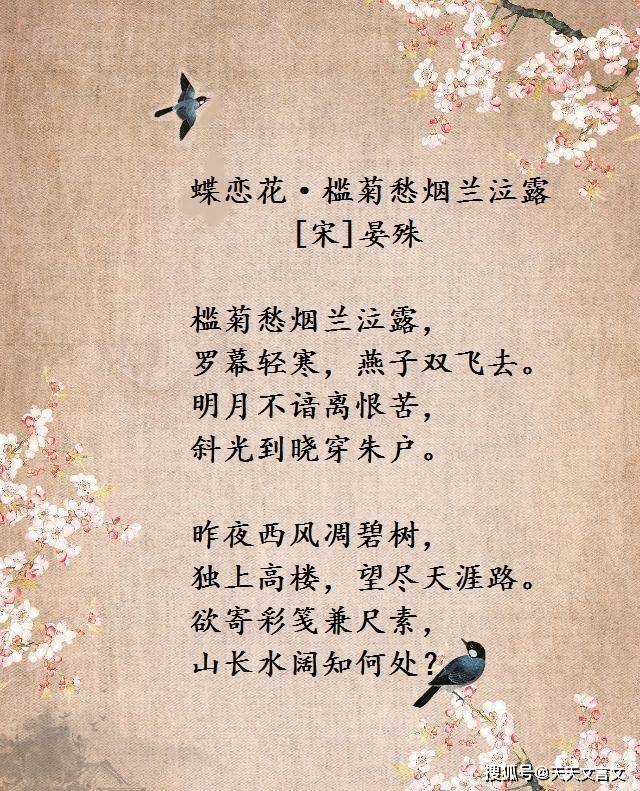 蝶恋花·槛菊愁烟兰泣露
[宋]晏殊
槛菊愁烟兰泣露，
罗幕轻寒，燕子双飞去。
明月不谙离恨苦，
斜光到晓穿朱户。
昨夜西风凋碧树，
独上高楼，望尽天涯路。
欲寄彩笺兼尺素，
山长水阔知何处？
搜狐号@天天文言文